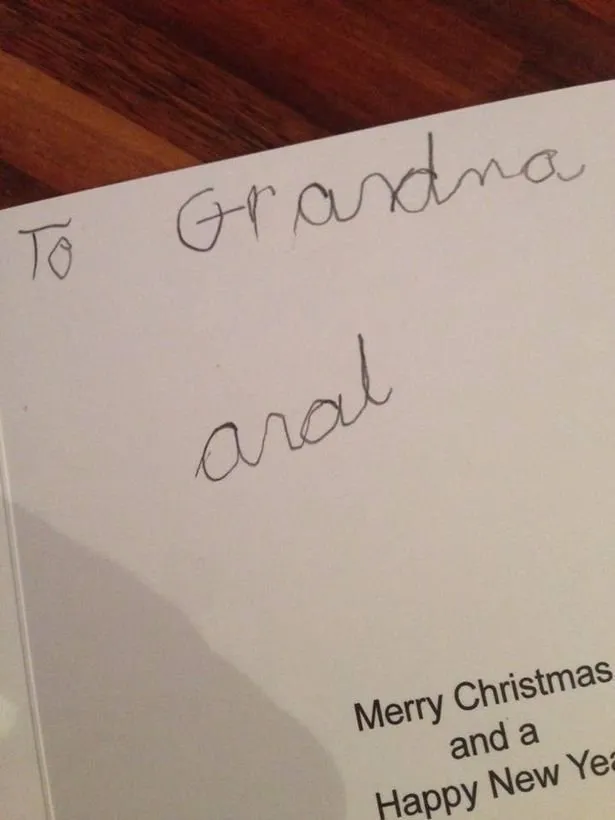 To Grandma
anal
Merry Christmas
and a
Happy New Yea